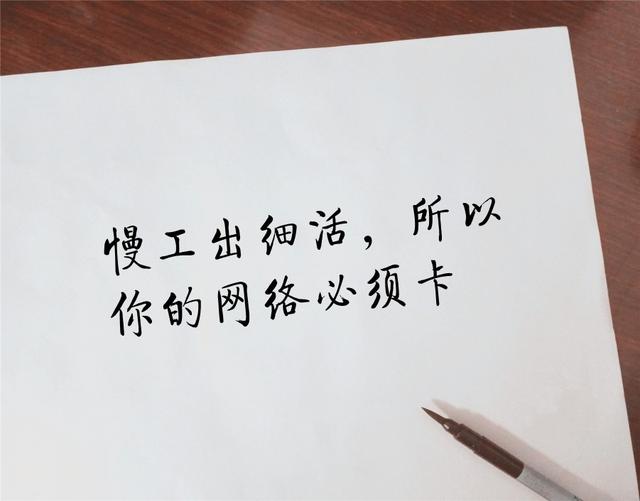 慢工出细活，所以
你的网络必须卡